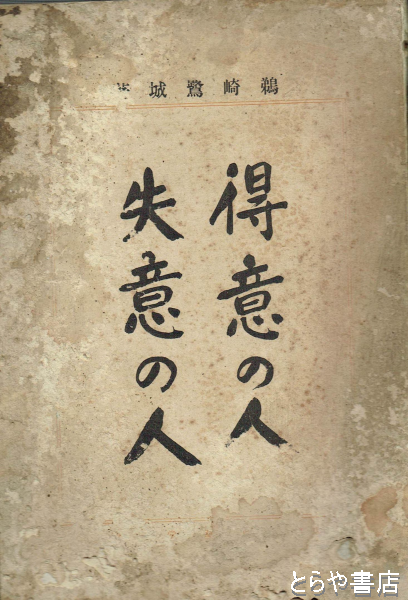 鵜崎鷺城
得意の人
失意の人
とらや書店